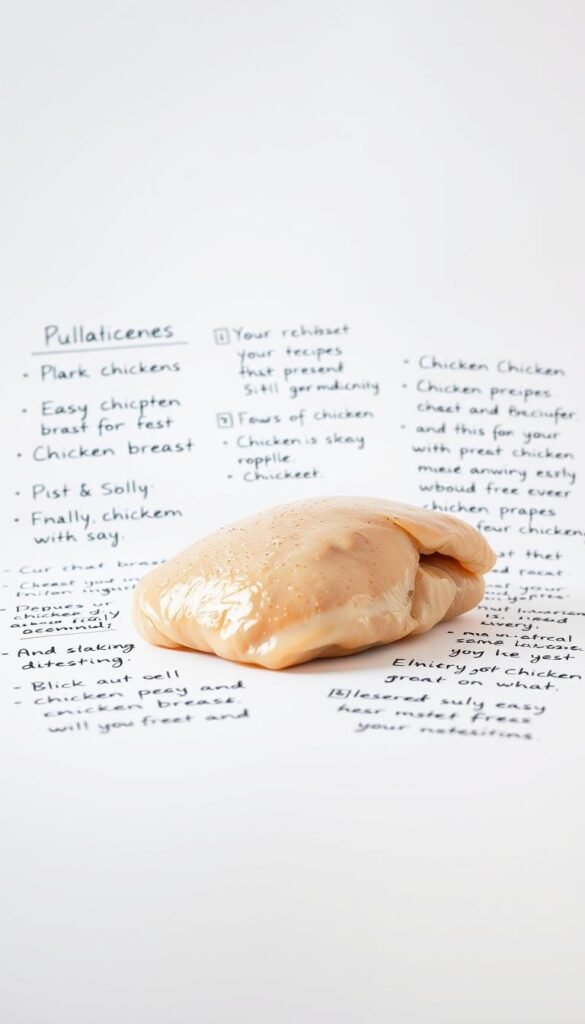 Pullaticenes
• Plark chickens
• Easy chicpten
brast for fest
• Chicken breast
• Pist & Solly:
• Fnally, chickem
with say.
- Cur chat breas
- Cheest you in
- Depues ur
chicken fly
- And slaking
ditesting.
- Blick aut oell
- chicken peay and
chicken breass.
will you freet and
1 Your rchibset
your tecipes
that present
Sitil germdicnity
Fows of chicken
• Chicken is skay
ropple.
• Chickeet.
• Chicken Chicken
• Chicken preipes
cheet and
• and this for your
with preat chicken
meie anwiry esrly
wboud free ever
chicken prapes
four chicken
that thet
your
is.
you he yest
Elniery got chicken
groat on what.
lesered suly easy
hesr mstet frees
your netesitins.